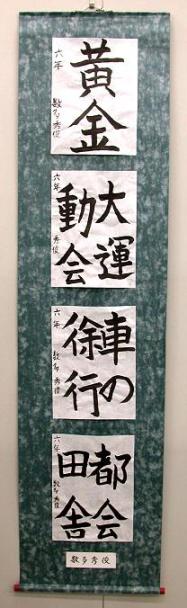 黄金
六年 数多秀俊
大運
動会
六年 秀俊
車の
徐行
六年 数多秀俊
都会
田舎
六年 数多秀俊
数多秀俊